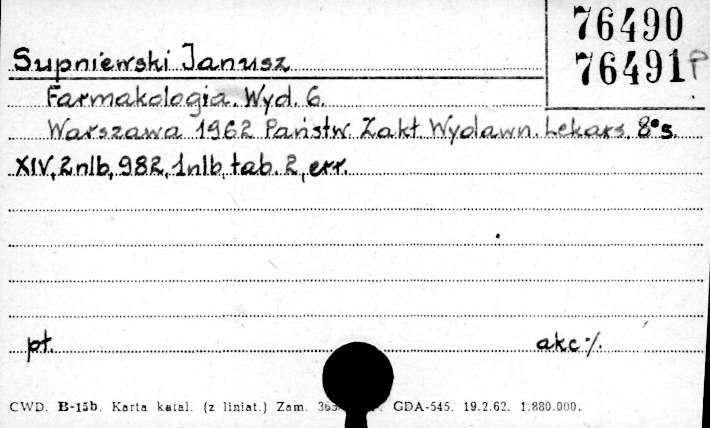 76490
76491 P
Supniewski Janusz
Farmakologia. Wyd. 6.
Warszawa 1962 Państw. Zakł. Wydawn. Lekars. 8° s.
XIV, 2nlb, 982, 1nlb, tab. 2, err.
pł. akc ·/.
CWD. B-15b. Karta katal. (z liniat.) Zam. GDA-545. 19.2.62. 1.880.000.